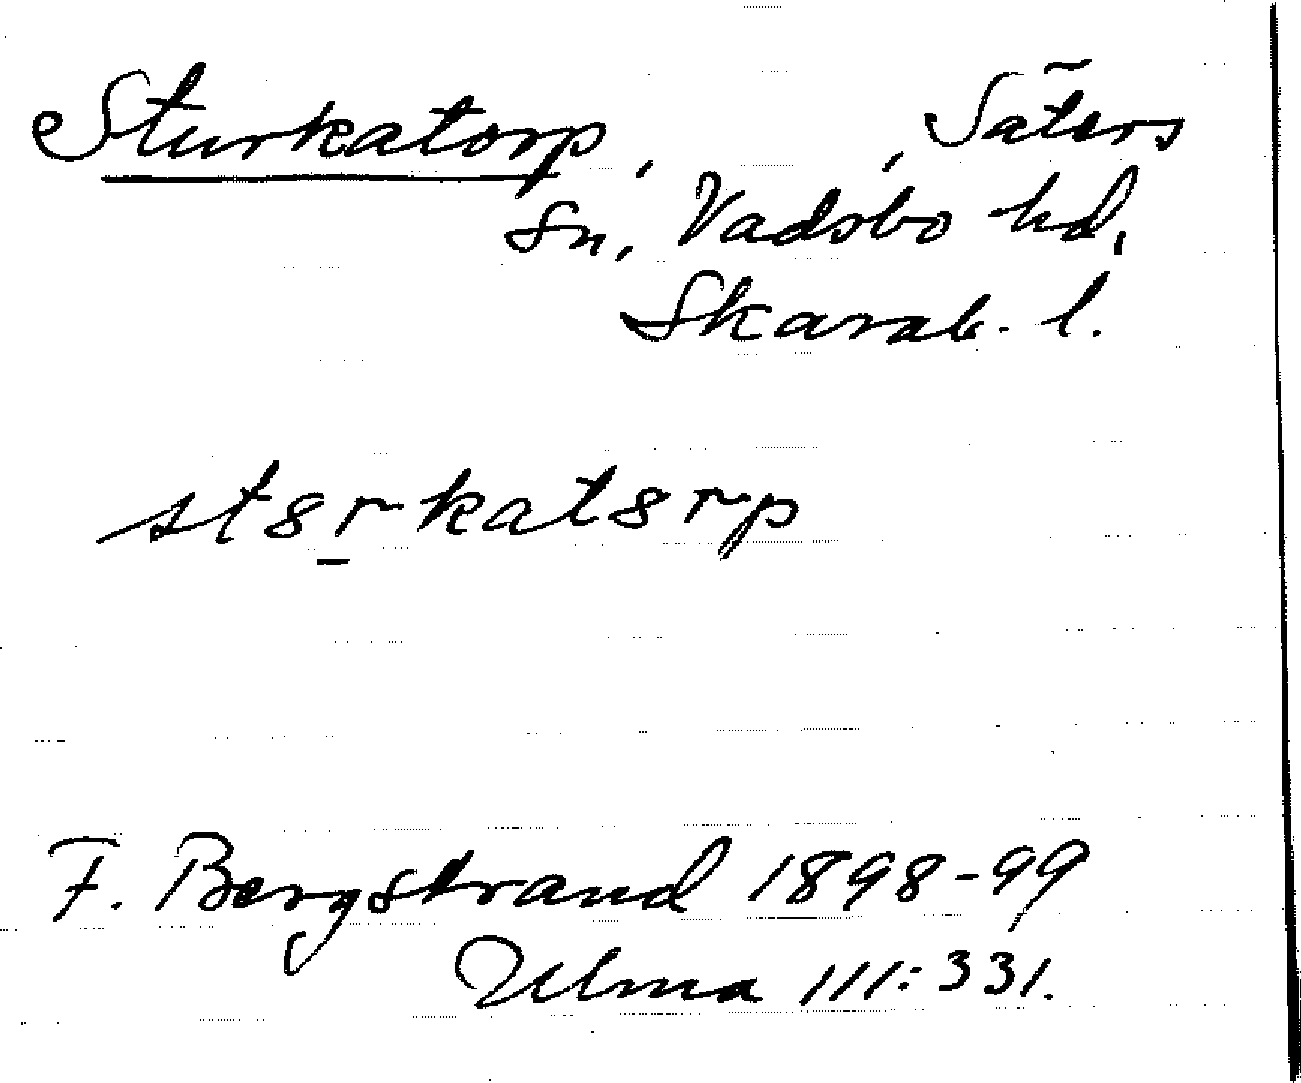 Sturkatorp, , Säters
sn, Vadsbo hd,
Skarab. l.
st8r̲kat8rp
F. Bergstrand 1898-99
Ulma 111:331.